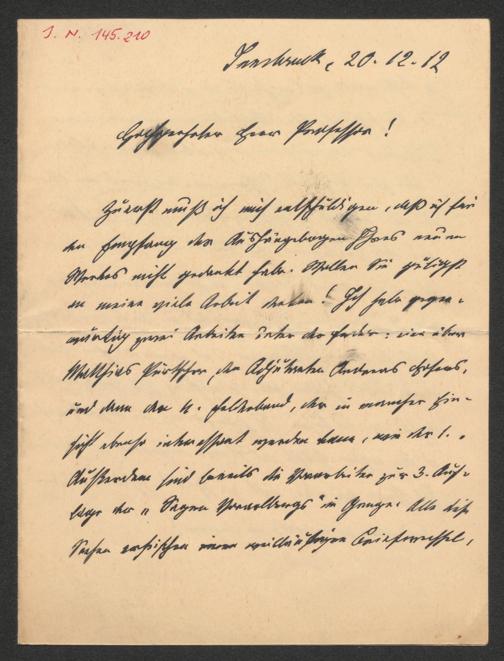 J. N. 145.210
Innsbruck, 20.12.12
Hochverehrter Herr Professor!
Zuerst muß ich mich entschuldigen, daß ich für
den Empfang der Aushängebogen Ihres neuen
Werkes nicht gedankt habe. Wollen Sie gütigst
an meine viele Arbeit denken! Ich habe gegen-
wärtig zwei Arbeiten unter der Feder: eine über
Matthias Purtscher, den Adjutanten Andreas Hofers,
und dann den II. , der in mancher Hin-
sicht ebenso interessant werden kann, wie der I.
Außerdem sind bereits die Vorarbeiten zur 3. Auf-
lage der „Sagen Vorarlbergs" im Gange. Alle diese
Sachen erheischen einen weitläufigen Briefwechsel,